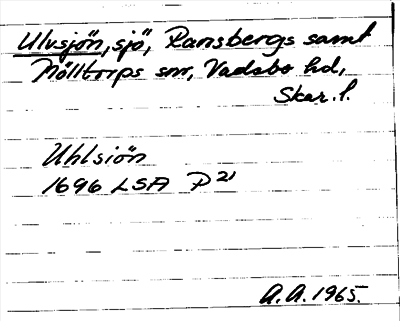 Ulvsjön, sjö, Ransbergs samt
Mölltorps snr, Vadsbo hd,
Skar. l.
Uhlsiön
1696 LSA P21
A.A. 1965.